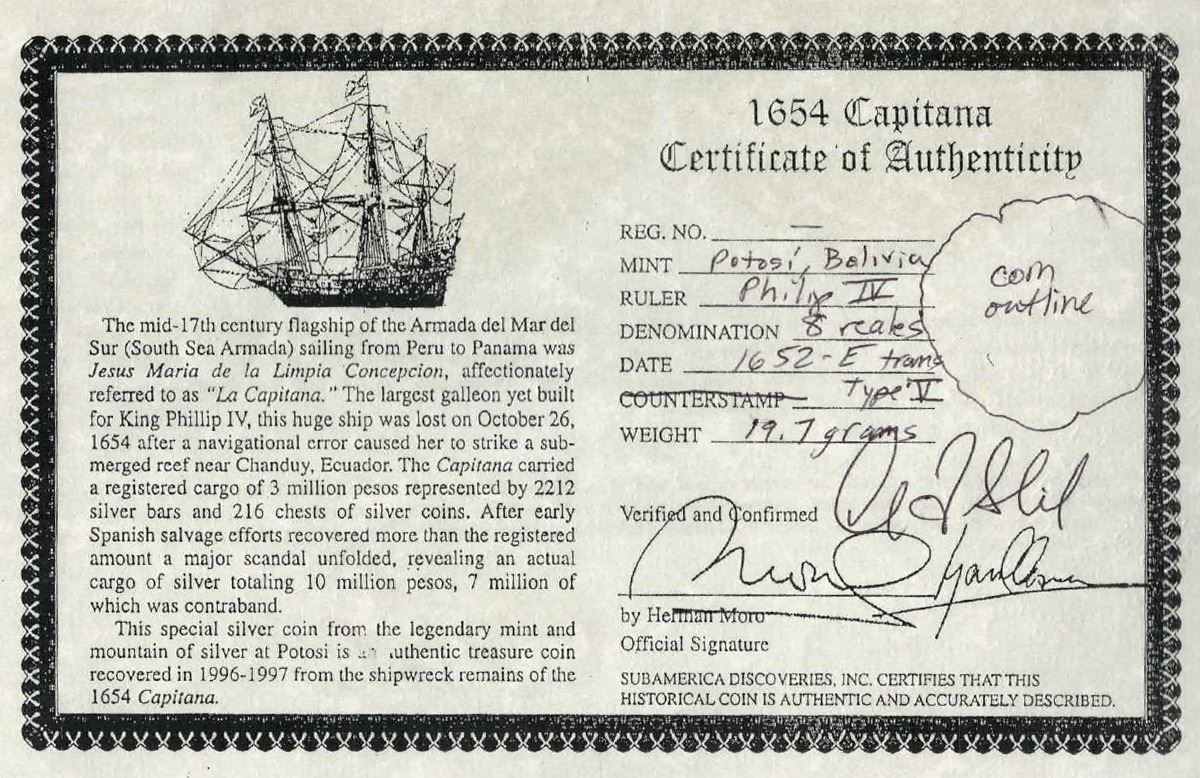 The mid-17th century flagship of the Armada del Mar del
Sur (South Sea Armada) sailing from Peru to Panama was
Jesus Maria de la Limpia Concepcion, affectionately
referred to as "La Capitana." The largest galleon yet built
for King Phillip IV, this huge ship was lost on October 26,
1654 after a navigational error caused her to strike a sub-
merged reef near Chanduy, Ecuador. The Capitana carried
a registered cargo of 3 million pesos represented by 2212
silver bars and 216 chests of silver coins. After early
Spanish salvage efforts recovered more than the registered
amount a major scandal unfolded, revealing an actual
cargo of silver totaling 10 million pesos, 7 million of
which was contraband.
This special silver coin from the legendary mint and
mountain of silver at Potosi is an authentic treasure coin
recovered in 1996-1997 from the shipwreck remains of the
1654 Capitana.
1654 Capitana
Certificate of Authenticity
REG. NO. —
MINT Potosí, Bolivia
RULER Philip IV
DENOMINATION 8 reales
DATE 1652-E trans
COUNTERSTAMP Type V
WEIGHT 19.7 grams
coin
outline
Verified and Confirmed
by Herman Moro
Official Signature
SUBAMERICA DISCOVERIES, INC. CERTIFIES THAT THIS
HISTORICAL COIN IS AUTHENTIC AND ACCURATELY DESCRIBED.